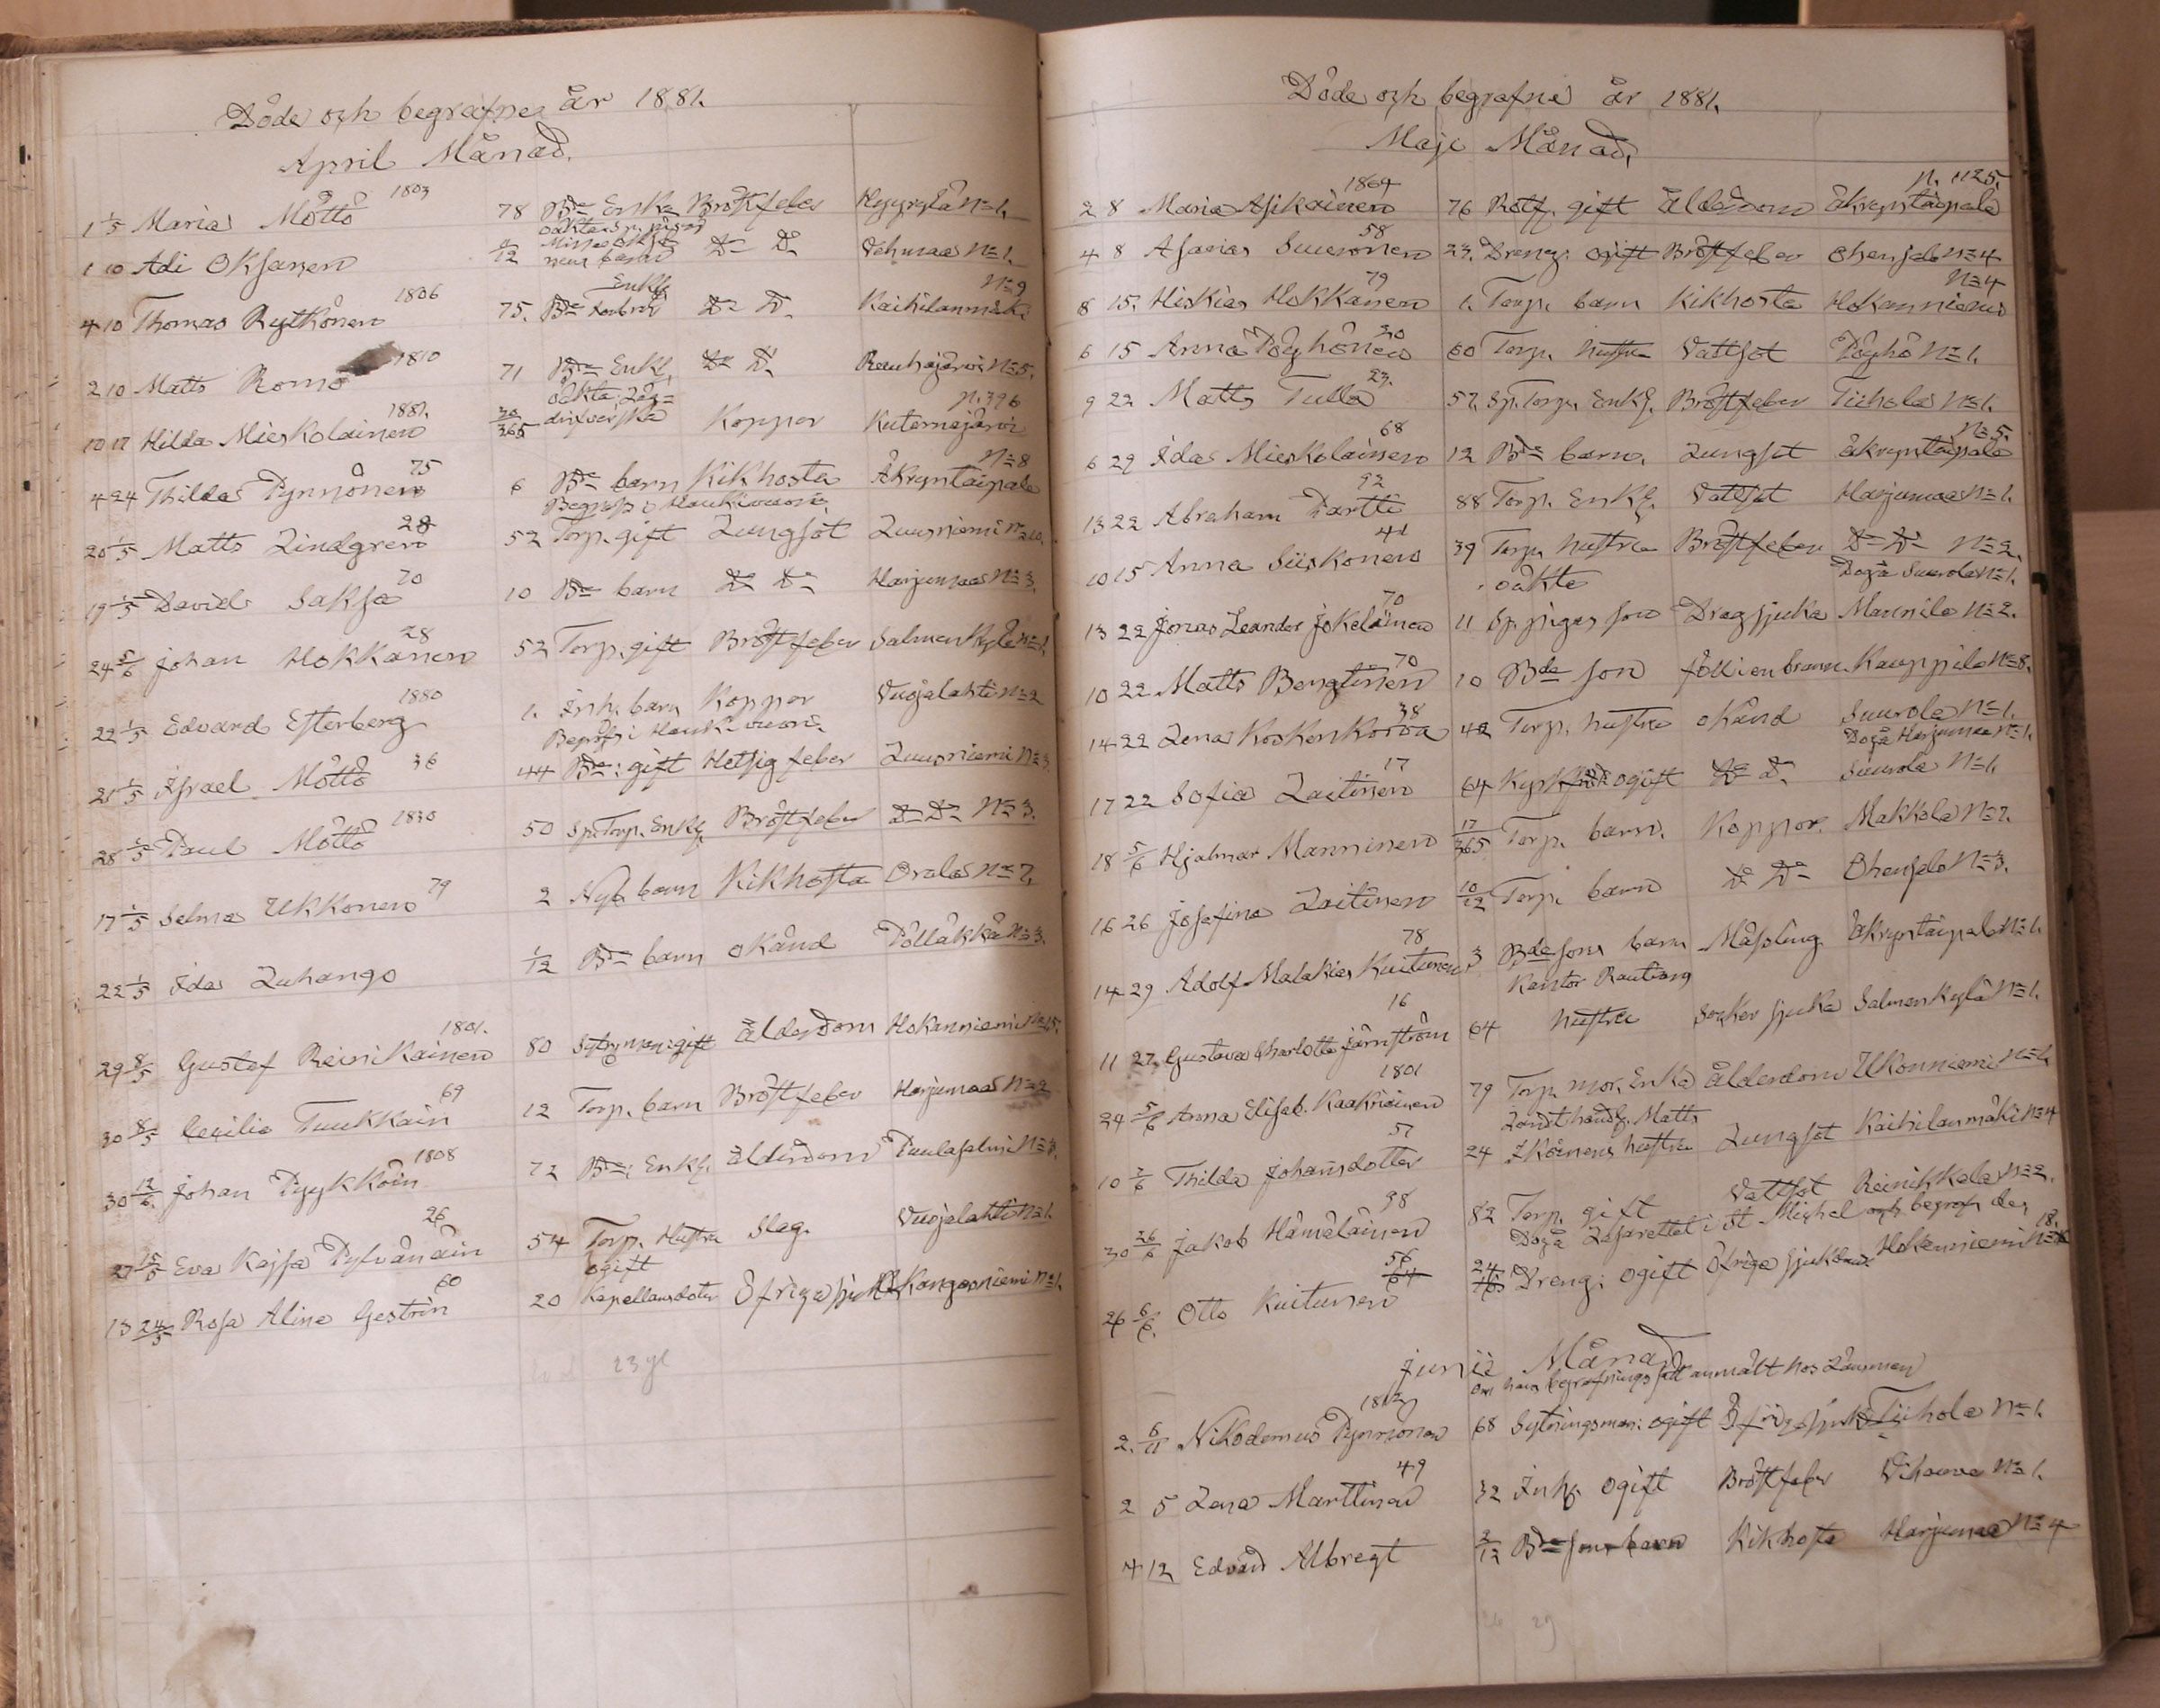 Döde och begrafne år 1881.
April Månad.
1 1/5 Maria Möttö 1803 78 Bde Enka Bröstfeber Hyyrylä No 1.
oäkta Sp. pigan
1 10 Adi Oksanen /12 barn Do Do Vehmaa No 1.
Enkl No 9
4 10 Thomas Rytkönen 1806 75. Bde Do Do Kaihilanmäki
2 10 Matts Romo 1810 71 Bde Enkl. Do Do Rauhajärvi No 5.
oäkta No 396
10 17 Hilda Mieskolainen 1881. 30/365 Koppor Kutemajärvi
No 8
4 24 Thilda Pynnönen 75 6 Bde barn Kikhosta Äkryntaipale
Begrofs i Haukivuori.
20 1/5 Matts Lindgren 28 52 Torp. gift Lungsot Luusniemi No 20.
19 1/5 David Saksa 70 10 Bde barn Do Do Harjumaa No 3.
24 5/6 Johan Hokkanen 28 52 Torp. gift Bröstfeber Salmenkylä No 1.
22 1/5 Edvard Esterberg 1880 1. Inh. barn Koppor Vuojalahti No 2
Begrofs i Haukivuori.
21 1/5 Israel Möttö 36 44 Bde: gift Hetsig feber Luusniemi No 3.
28 1/5 Paul Möttö 1830 50 Sp. Torp. Enkl. Bröstfeber Do Do No 3.
17 1/5 Selma Ukkonen 79 2 Nyb. barn Kikhosta Orala No 7.
22 1/5 Ida Luhango 1/12 Bde barn Okänd Pölläkkä No 3.
29 8/5 Gustaf Reinikainen 1801. 80 Sytn.man: gift Ålderdom Hokanniemi No 15.
30 8/5 Cecilia Tuukkain 69 12 Torp. barn Bröstfeber Harjumaa No 2
30 12/6. Johan Pyykköin 1808 72 Bde: Enkl. Ålderdom Puulasalmi No 8.
27 15/5 Eva Kajsa Pylvänäin 26 54 Torp. Hustru Slag. Vuojalahti No 1.
ogift
13 24/5 Rosa Alina Gestrin 60 20 Kapellansdotter Öfriga sjukd. Kangasniemi No 1.
23 29
Döde och begrafne år 1881.
Maji Månad.
No 1125.
2 8 Maria Asikainen 1804 76 Rotf. gift Ålderdom Äkryntaipale
4 8 Asarias Suuronen 58 23. Dreng. ogift Bröstfeber Ohensalo No 4
No 4
8 15. Hiskias Hokkanen 79 1. Torp. barn Kikhosta Hokanniemi
6 15 Anna Pöyhönen 20 60 Torp. hustru Vattsot Pöyhö No 1.
9 22 Matts Tulla 23. 57. Sp. Torp. Enkl. Bröstfeber Tiihola No 1.
No 5.
6 29 Ida Mieskolainen 68 12 Bde barn. Lungsot Äkryntaipale
13 22 Abraham Partti 92 88 Torp. Enkl. Vattsot Harjumaa No 1.
10 15 Anna Siiskonen 41 39 Torp. hustru Bröstfeber Do Do No 2.
oäkta Dog å Suurola No 1.
13 22 Jonas Leander Jokelainen 70 11 Sp. pigas son Dragsjuka Mannila No 2.
10 22 Matts Bengtinen 70 10 Bde son Kauppila No 8.
14 22 Lena Koskenkorva 38 42 Torp. hustru Okänd Suurola No 1.
Dog å Harjumaa No 1.
17 22 Sofia Laitinen 17 64 ogift Do Do Suurola No 1.
18 5/6 Hjalmar Manninen 17/365 Torp. barn. Koppor. Makkola No 7.
16 26 Josefina Laitinen 10/12 Torp. barn Do Do Ohensalo No 3.
14 29 Adolf Malakias Kuitunen 78 3 Bde sons barn Mässling Äkryntaipale No 1.
Kantor Rautiang
11 27. Gustava Charlotta Järnström 16 64 hustru Socker sjuka Salmenkylä No 1.
24 5/6 Anna Elisab. Kaakkinen 1801 79 Torp. mor. Enka Ålderdom Ukonniemi No 1.
Landthandl. Matts
10 7/6 Thilda Johansdotter 57 24 Ikäinens hustru Lungsot Kaihilanmäki No 4
30 26/6 Jakob Hämäläinen 98 82 Torp. gift Vattsot Reinikkala No 2.
Dog å Lasarettet i St Michel och begrofs der
26 6/6. Otto Kuitunen 56 64 24/165 Dreng: ogift Öfriga sjukdom. Hokanniemi No 18.
Junii Månad
Om hans begrafning satt anmält hos Länsman
2. 6/11 Nikodemus Pynnönen 1812 68 Sytningsman: ogift Öfriga sjukd. Tiihola No 1.
2 5 Lena Marttinen 49 32 Inh. ogift Bröstfeber Vihanva No 1.
4 12 Edvard Albregt 2/12 Bde sons barn Kikhosta Harjumaa No 4
29